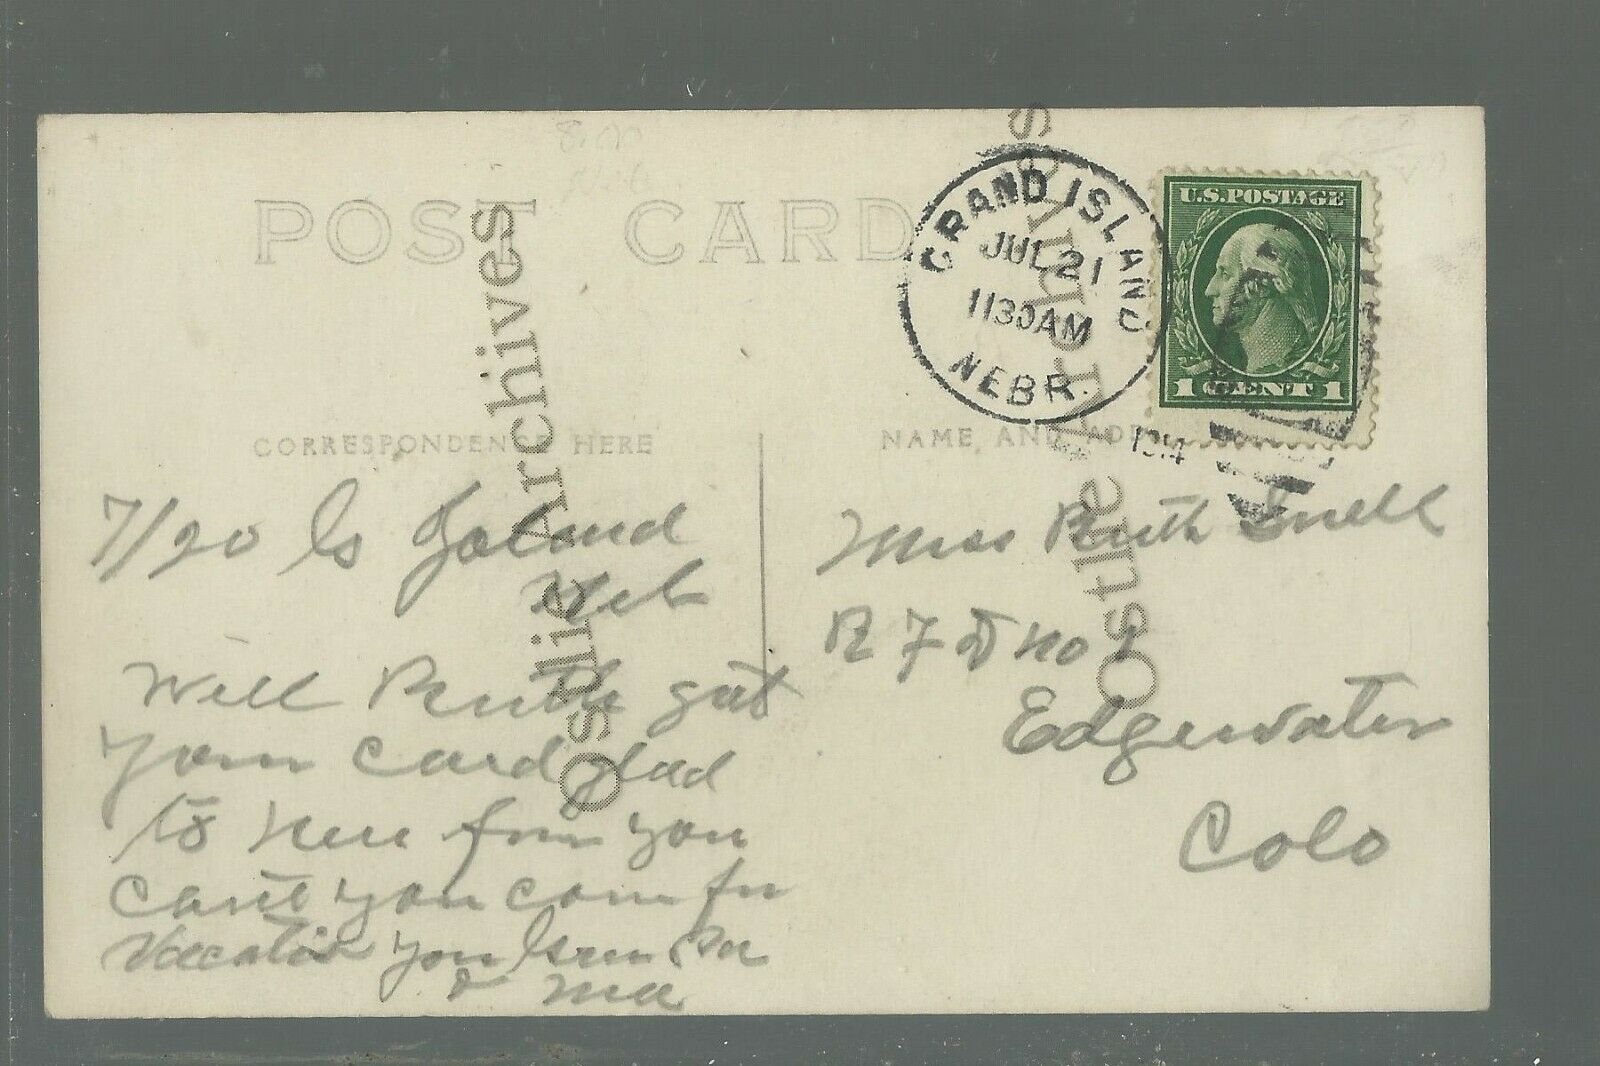 POST CARD
GRAND ISLAND
JUL 21
1130AM
NEBR.
1914
U.S. POSTAGE
1 CENT 1
CORRESPONDENCE HERE
NAME AND ADD
7/20 G Island
Neb
Will Ruth got
your card glad
to here from you
can't you come for
Vacation your Gran Pa
& Ma
Miss Ruth Snell
R F D no 1
Edgewater
Colo
Ostlie Archives
Ostlie Archives